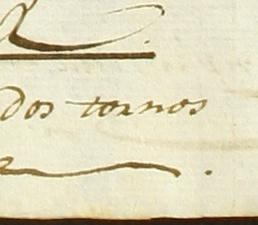 dos tornos